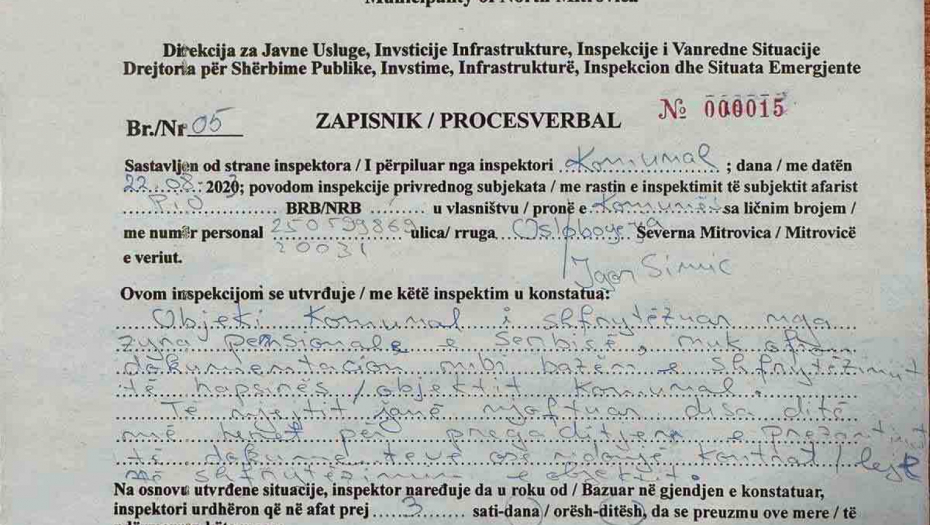 Municipality of North Mitrovica
Direkcija za Javne Usluge, Invsticije Infrastrukture, Inspekcije i Vanredne Situacije
Drejtoria për Shërbime Publike, Invstime, Infrastrukturë, Inspekcion dhe Situata Emergjente
Br./Nr 05 ZAPISNIK / PROCESVERBAL № 000015
Sastavljen od strane inspektora / I përpiluar nga inspektori Komunal ; dana / me datën
22.08. 2023; povodom inspekcije privrednog subjekata / me rastin e inspektimit të subjektit afarist
PIO BRB/NRB / u vlasništvu / pronë e Komunës sa ličnim brojem /
me numër personal 250599869 ulica/ rruga Severna Mitrovica / Mitrovicë
20031
e veriut. Igor Simic
Ovom inspekcijom se utvrđuje / me këtë inspektim u konstatua:
Objekti Komunal i shfrytëzuar nga
zyra pensionale e Serbisë, nuk ofron
dokumentacion mbi bazën e shfrytëzimit
të hapsirës / objektit Komunal.
Të njejtit janë njoftuar disa ditë
më heret për pregaditjen e prezantimit
të dokumenteve ose ndonjë kontrat / leje
në shfrytëzimin e objektit.
Na osnovu utvrđene situacije, inspektor naređuje da u roku od / Bazuar në gjendjen e konstatuar,
inspektori urdhëron që në afat prej 3 sati-dana / orësh-ditësh, da se preuzmu ove mere / të